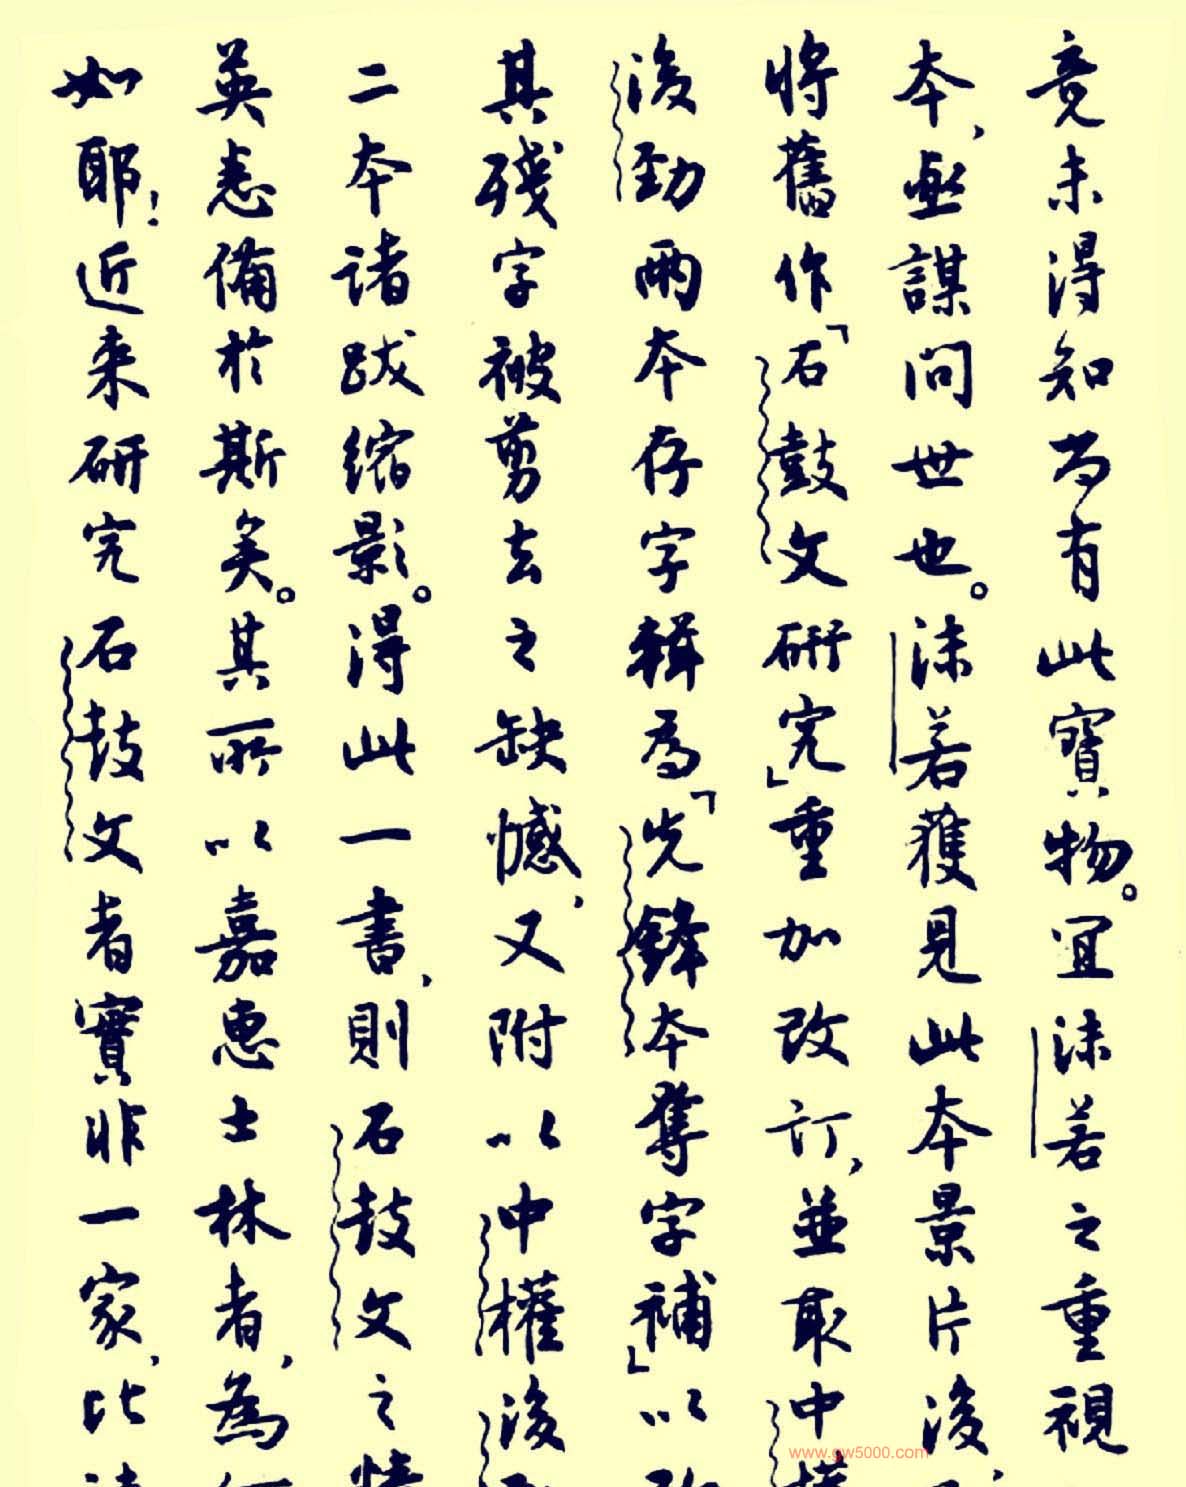 竟未得知尚有此寶物。宜沫若之重視
本，亟謀問世也。沫若獲見此本景片後，
將舊作「石鼓文研究」重加改訂，並取中權
後勁兩本存字輯為「先鋒本奪字補」以
其殘字被剪去之缺憾，又附以中權後
二本諸跋縮影。得此一書，則石鼓文之
英悉備於斯矣。其所以嘉惠士林者，為
如耶！近来研究石鼓文者實非一家，比
www.gw5000.com